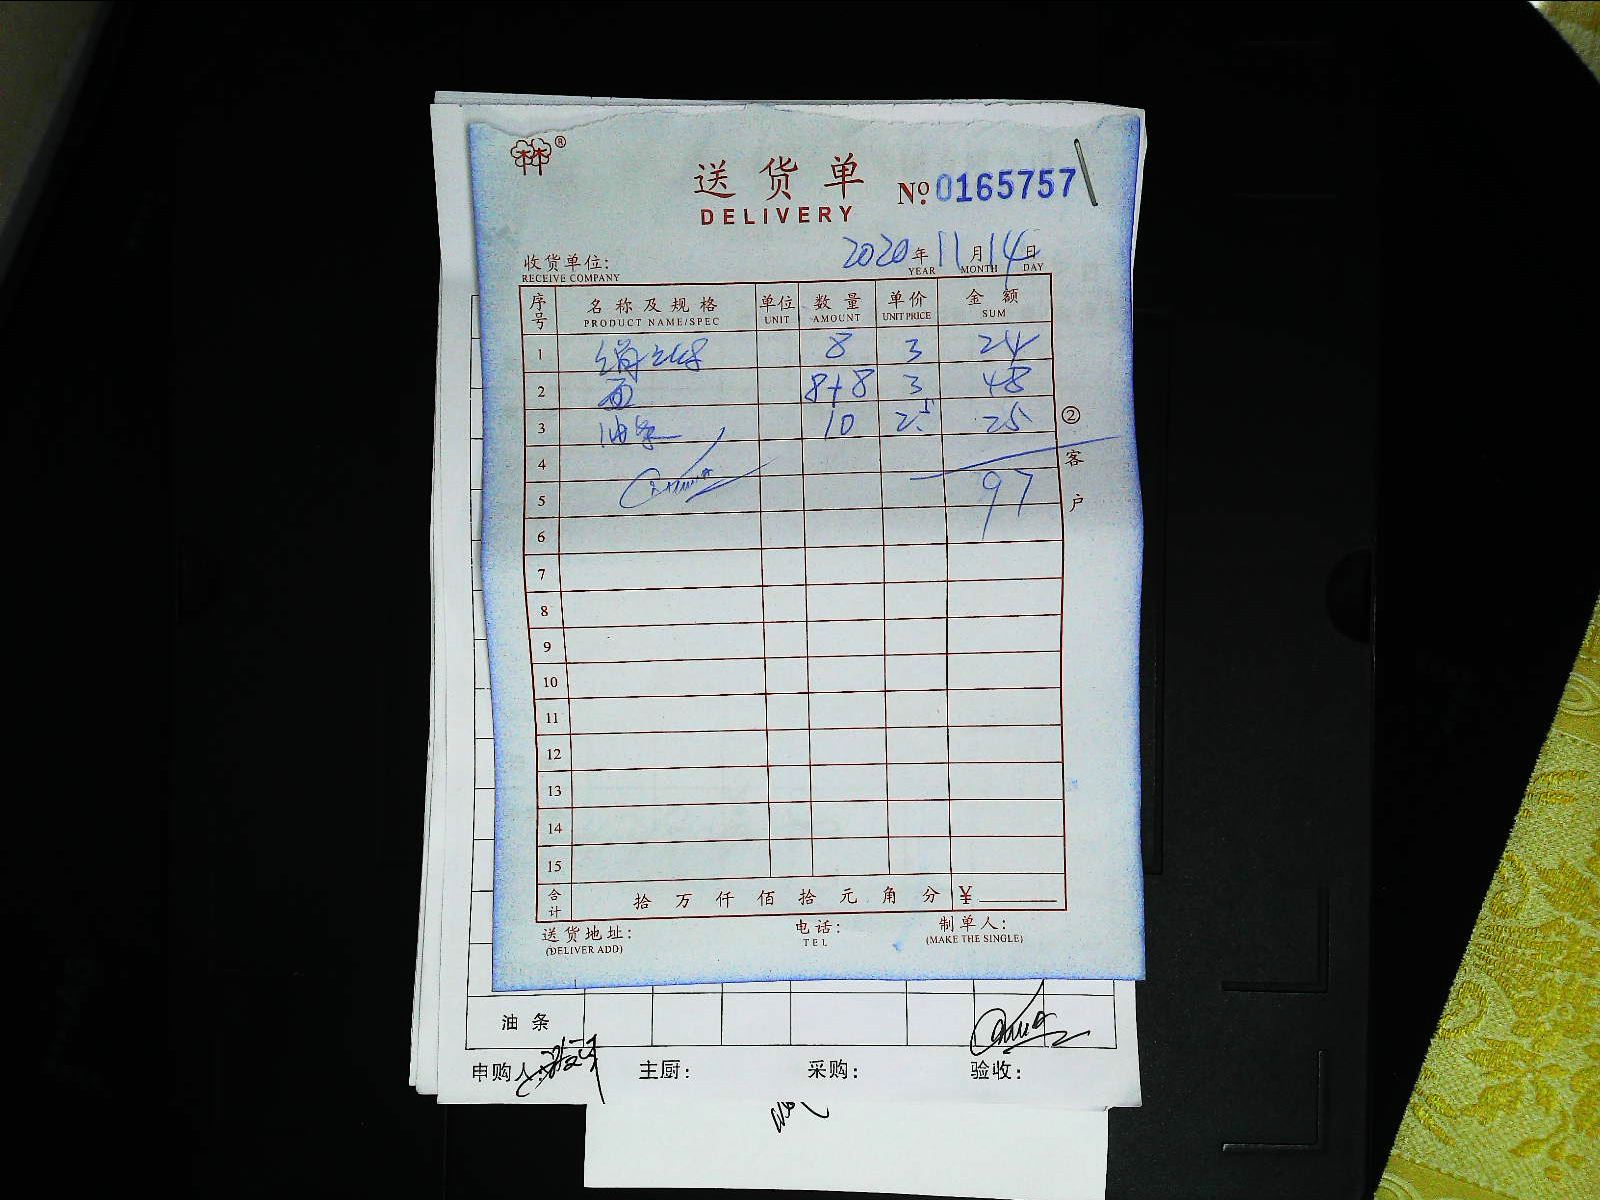 林®
送货单 № 0165757
DELIVERY
收货单位: 2020年11月14日
RECEIVE COMPANY YEAR MONTH DAY
序号 名称及规格 单位 数量 单价 金额
PRODUCT NAME/SPEC UNIT AMOUNT UNIT PRICE SUM
1 8 3 24
2 面 8+8 3 48
3 油条 10 2.5 25
4
5 97
6
7
8
9
10
11
12
13
14
15
合计 拾万仟佰拾元角分 ¥
送货地址: 电话: 制单人:
(DELIVER ADD) TEL (MAKE THE SINGLE)
②客户
油条
申购人: 主厨: 采购: 验收: